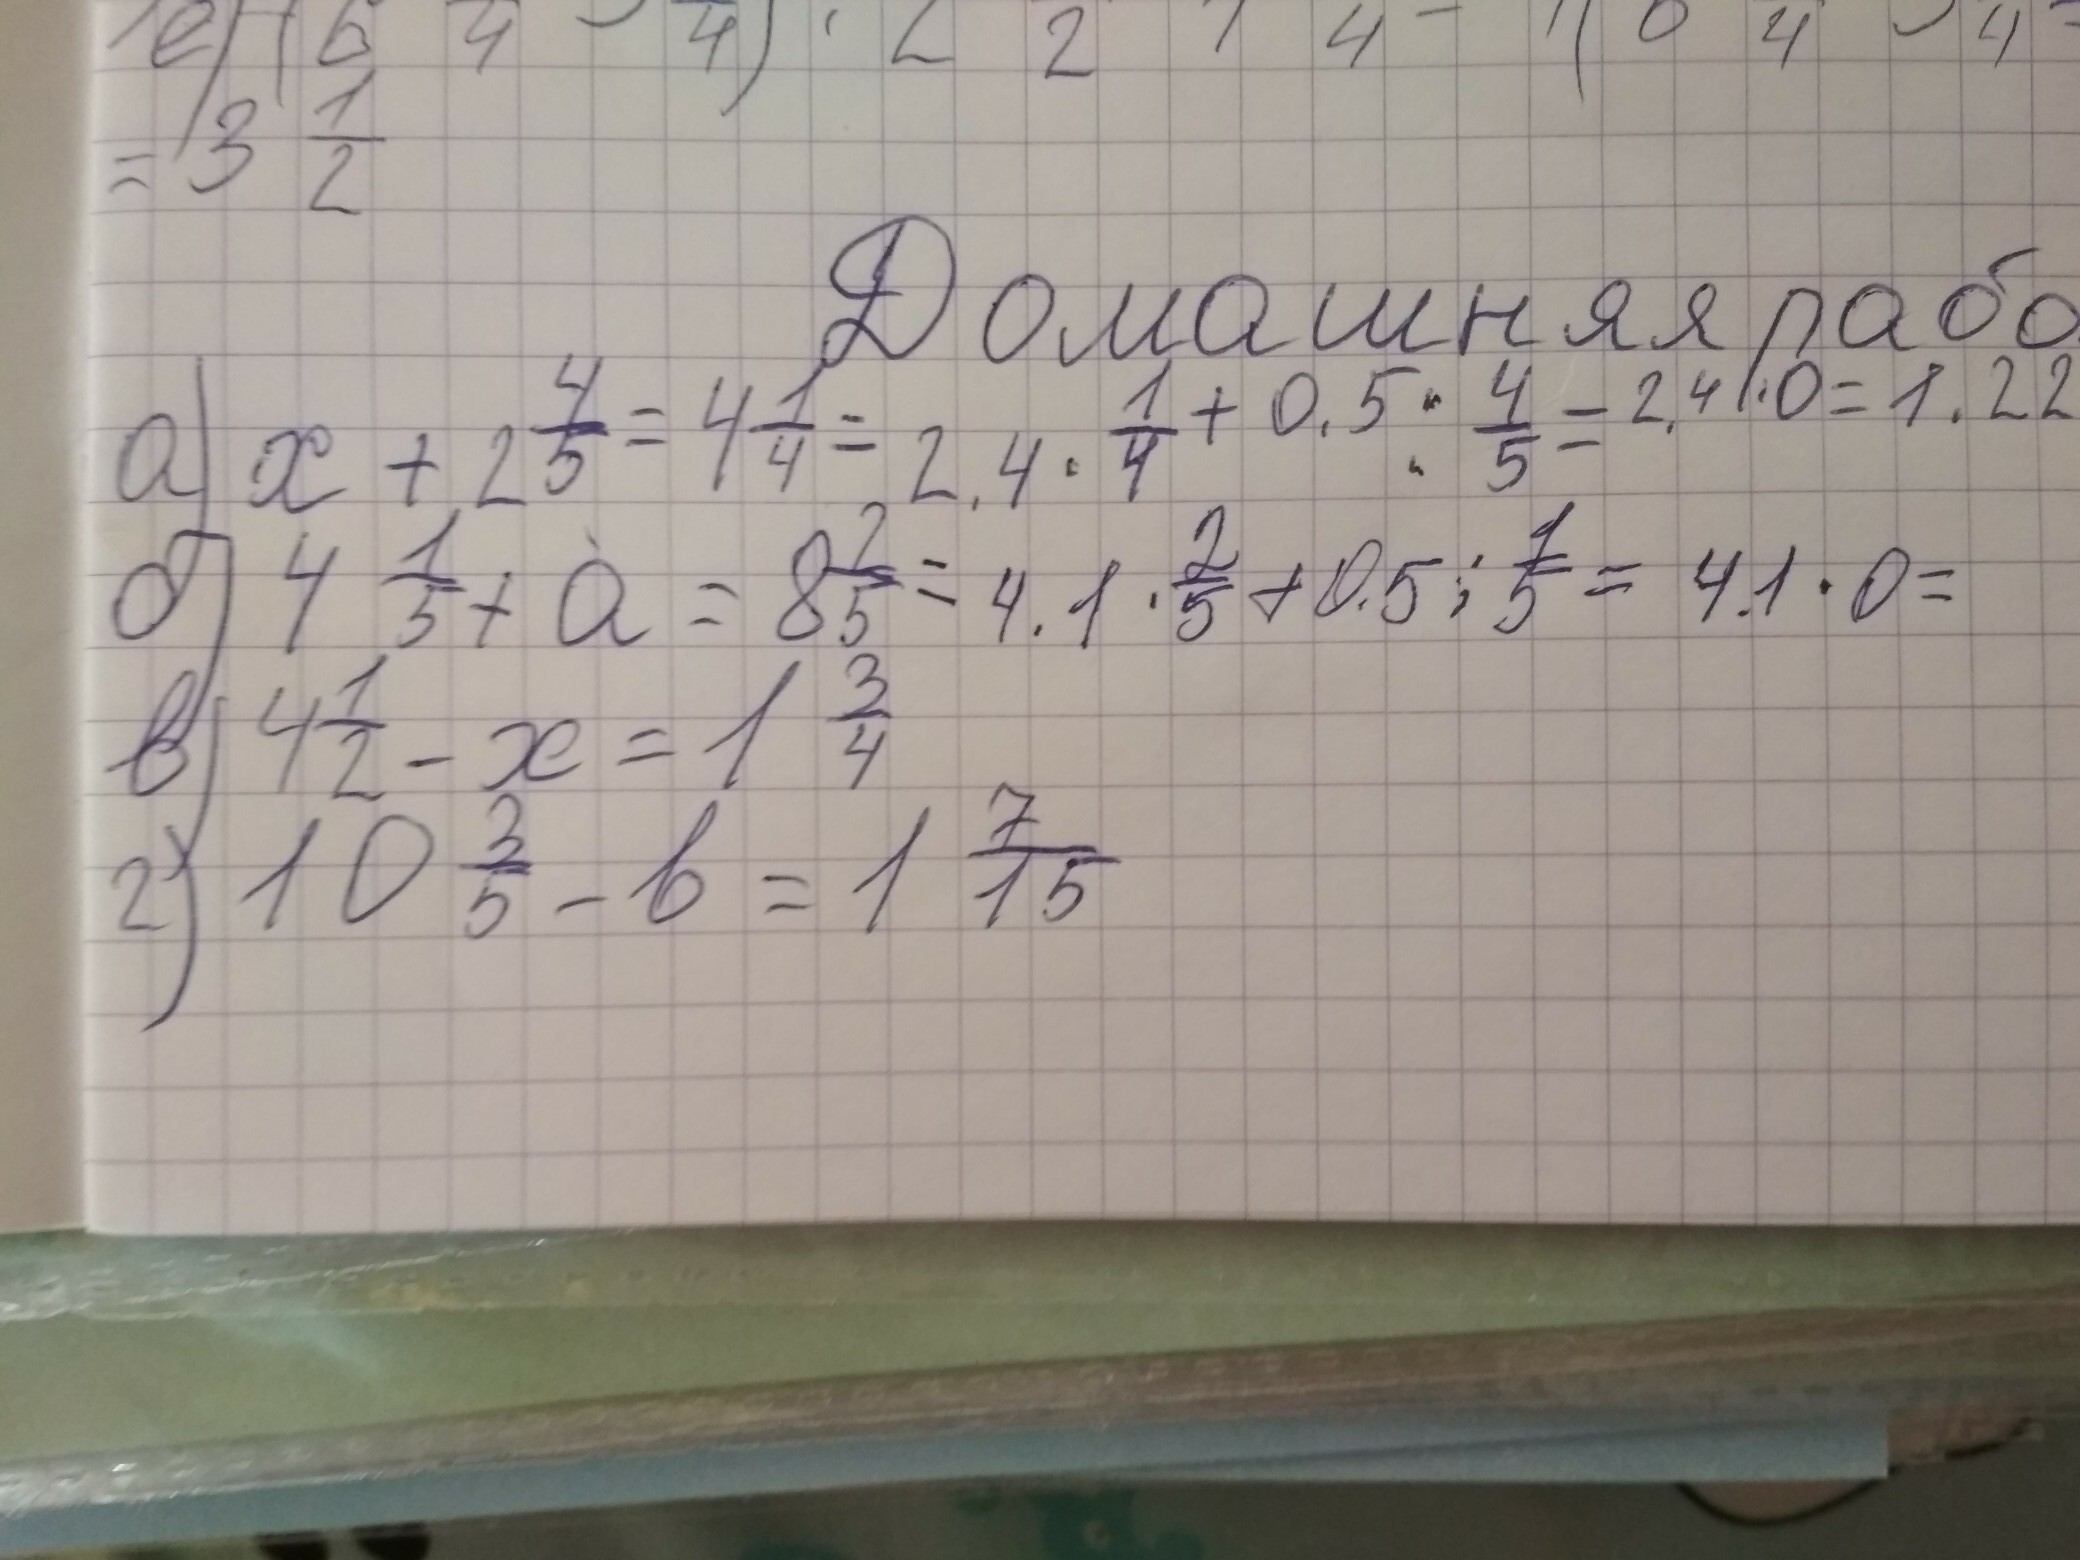 = 3 1/2
Домашняя рабо
а) x + 2 4/5 = 4 1/4 = 2.4 · 1/4 + 0.5 : 4/5 = 2.4 · 0 = 1.22
б) 4 1/5 + a = 8 2/5 = 4.1 · 2/5 + 0.5 : 1/5 = 4.1 · 0 =
в) 4 1/2 - x = 1 3/4
г) 10 3/5 - b = 1 7/15